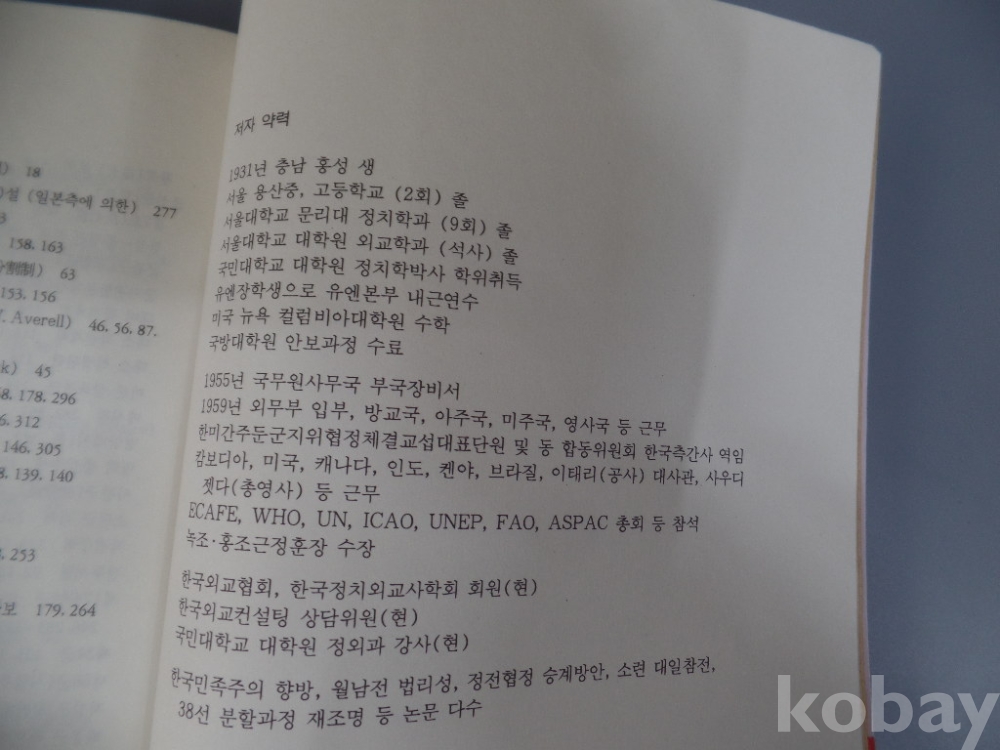 18
설 (일본측에 의한) 277
3
158. 163
分割制) 63
153. 156
. Averell) 46. 56. 87.
k) 45
8. 178. 296
6. 312
146. 305
8. 139. 140
253
보 179. 264
저자 약력
1931년 충남 홍성 생
서울 용산중, 고등학교 (2회) 졸
서울대학교 문리대 정치학과 (9회) 졸
서울대학교 대학원 외교학과 (석사) 졸
국민대학교 대학원 정치학박사 학위취득
유엔장학생으로 유엔본부 내근연수
미국 뉴욕 컬럼비아대학원 수학
국방대학원 안보과정 수료
1955년 국무원사무국 부국장비서
1959년 외무부 입부, 방교국, 아주국, 미주국, 영사국 등 근무
한미간주둔군지위협정체결교섭대표단원 및 동 합동위원회 한국측간사 역임
캄보디아, 미국, 캐나다, 인도, 켄야, 브라질, 이태리(공사) 대사관, 사우디
젯다(총영사) 등 근무
ECAFE, WHO, UN, ICAO, UNEP, FAO, ASPAC 총회 등 참석
녹조·홍조근정훈장 수장
한국외교협회, 한국정치외교사학회 회원(현)
한국외교컨설팅 상담위원(현)
국민대학교 대학원 정외과 강사(현)
한국민족주의 향방, 월남전 법리성, 정전협정 승계방안, 소련 대일참전,
38선 분할과정 재조명 등 논문 다수
kobay